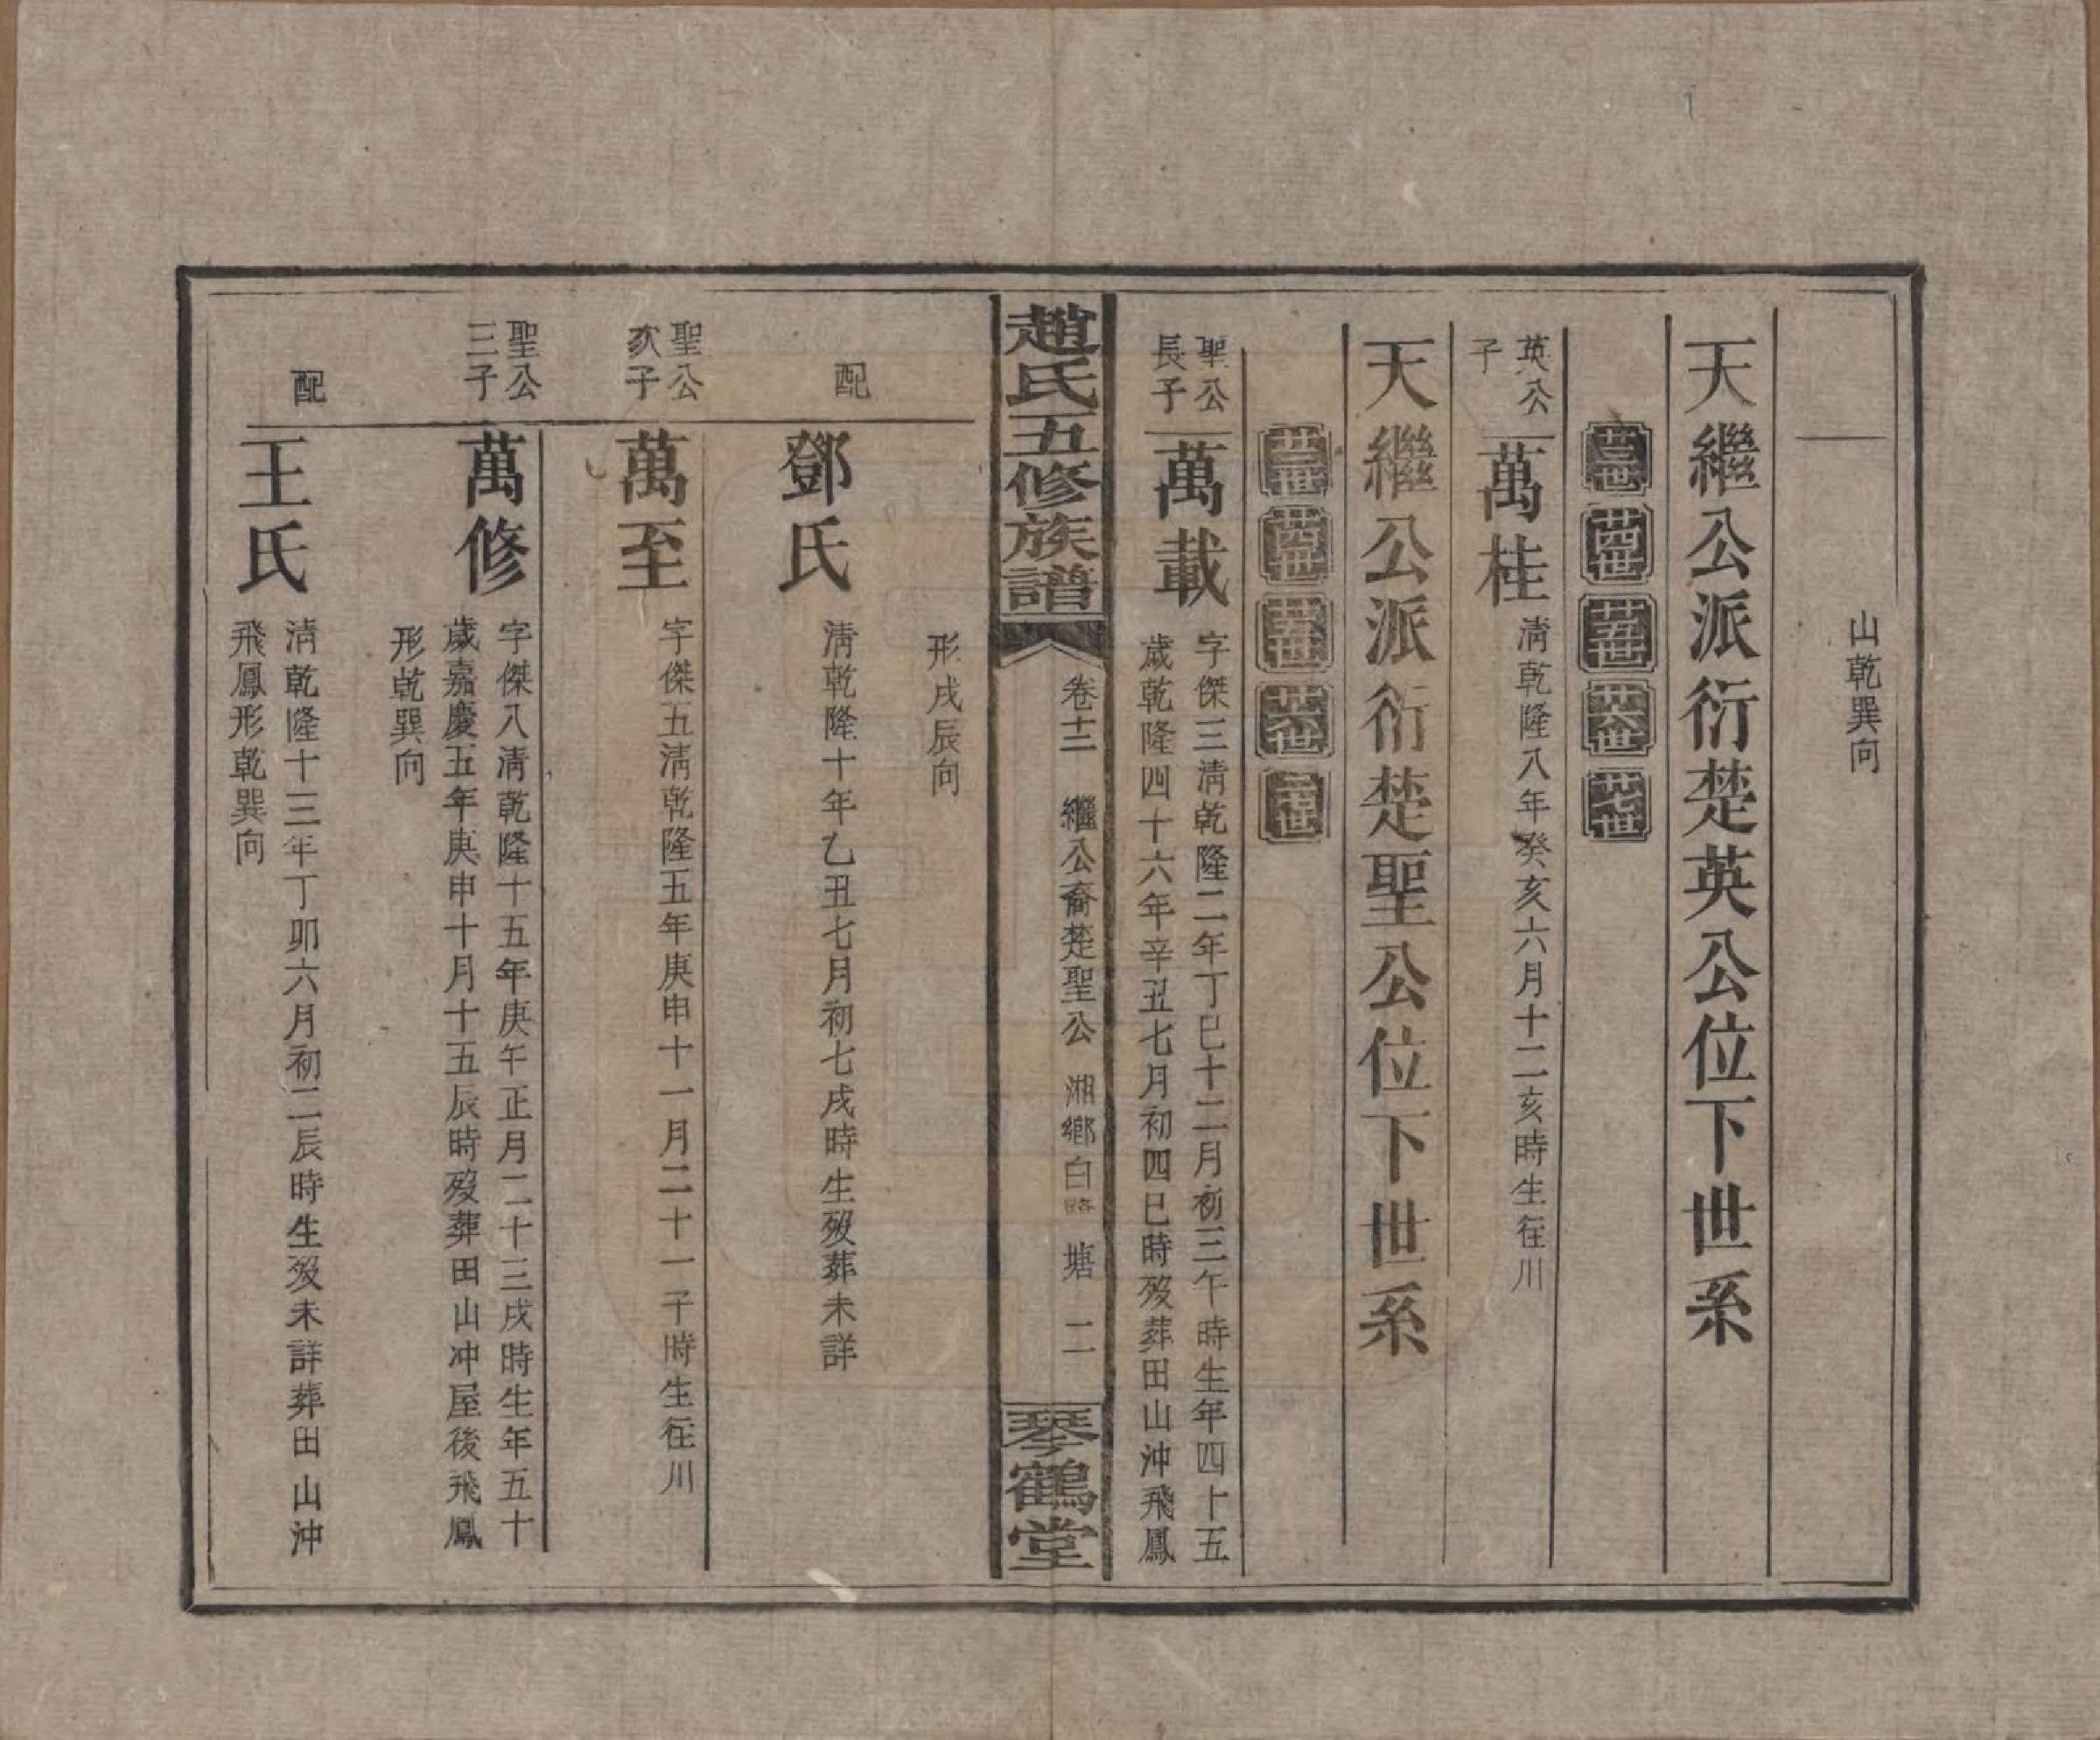 山乾巽向
天繼公派衍楚英公位下世系
廿三世 廿四世 廿五世 廿六世 廿七世
英公
子
萬桂
清乾隆八年癸亥六月十二亥時生往川
天繼公派衍楚聖公位下世系
廿三世 廿四世 廿五世 廿六世 廿七世
聖公
長子
萬載
字傑三清乾隆二年丁巳十二月初三午時生年四十五
歲乾隆四十六年辛丑七月初四巳時歿葬田山沖飛鳳
趙氏五修族譜
卷十二 繼公裔楚聖公 湘鄉白鷺塘 二
琴鶴堂
形戌辰向
配
鄧氏
清乾隆十年乙丑七月初七戌時生歿葬未詳
聖公
次子
萬至
字傑五清乾隆五年庚申十一月二十一子時生往川
聖公
三子
萬修
字傑八清乾隆十五年庚午正月二十三戌時生年五十
歲嘉慶五年庚申十月十五辰時歿葬田山冲屋後飛鳳
形乾巽向
配
王氏
清乾隆十三年丁卯六月初二辰時生歿未詳葬田山沖
飛鳳形乾巽向